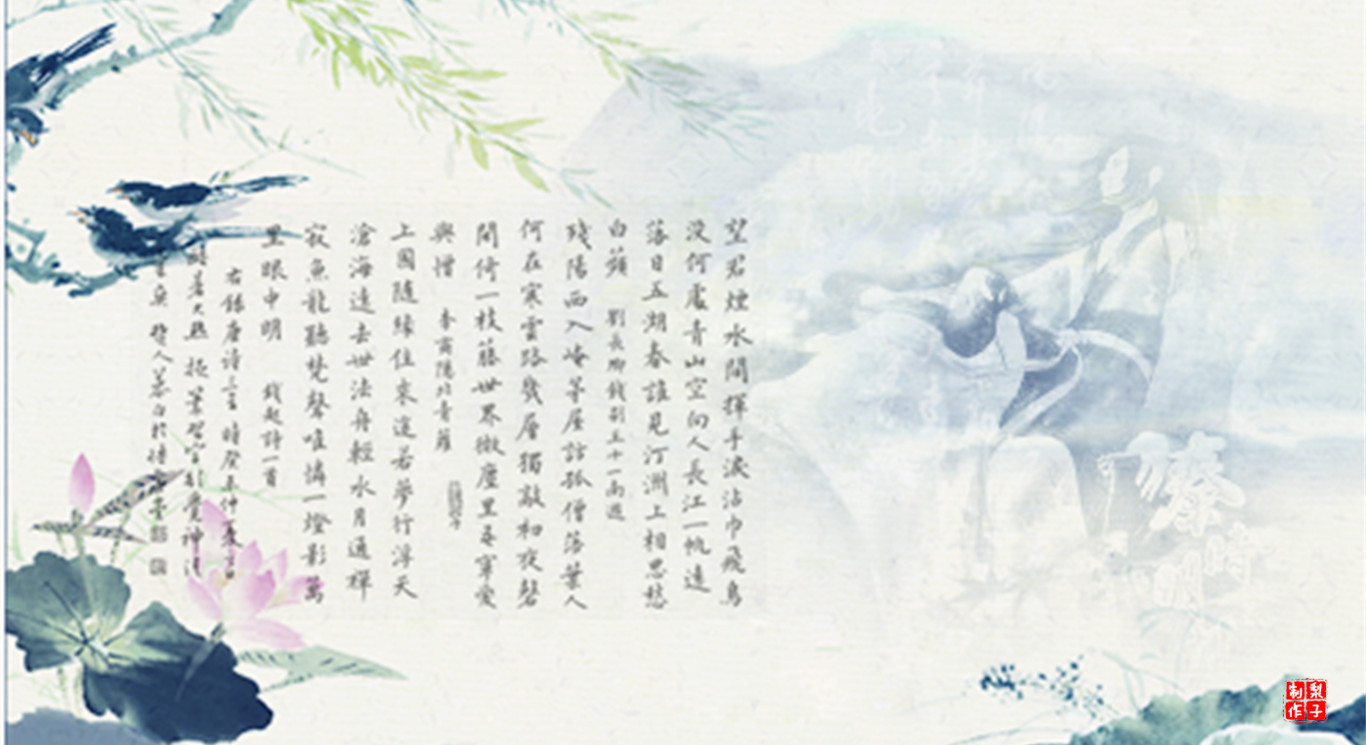 望君煙水闊揮手淚沾巾飛鳥
沒何處青山空向人長江一帆遠
落日五湖春誰見汀洲上相思愁
白蘋 劉長卿餞別王十一南遊
殘陽西入崦茅屋訪孤僧落葉人
何在寒雲路幾層獨敲初夜磬
閒倚一枝藤世界微塵里吾寧愛
與憎 李商隱北青蘿
上國隨緣住來途若夢行浮天
滄海遠去世法舟輕水月通禪
寂魚龍聽梵聲唯憐一燈影萬
里眼中明 錢起詩一首
右錄唐詩三首 時癸未仲夏
秦時明
梨子制作